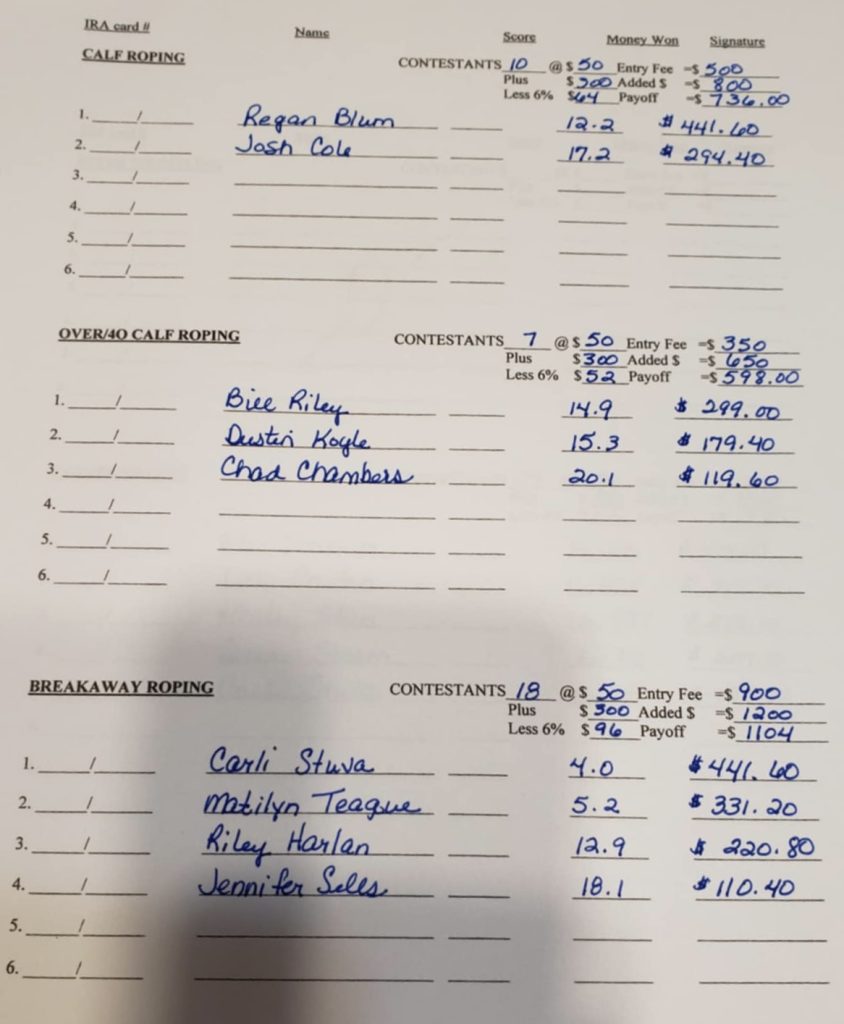 IRA card # Name Score Money Won Signature
CALF ROPING CONTESTANTS 10 @ $ 50 Entry Fee =$ 500
Plus $ 300 Added $ =$ 800
Less 6% $64 Payoff =$ 736.00
1. / Regan Blum 12.2 $ 441.60
2. / Josh Cole 17.2 $ 294.40
3. /
4. /
5. /
6. /
OVER/40 CALF ROPING CONTESTANTS 7 @ $ 50 Entry Fee =$ 350
Plus $ 300 Added $ =$ 650
Less 6% $ 52 Payoff =$ 598.00
1. / Bill Riley 14.9 $ 299.00
2. / Dustin Kogle 15.3 $ 179.40
3. / Chad Chambers 20.1 $ 119.60
4. /
5. /
6. /
BREAKAWAY ROPING CONTESTANTS 18 @ $ 50 Entry Fee =$ 900
Plus $ 300 Added $ =$ 1200
Less 6% $ 96 Payoff =$ 1104
1. / Carli Stuva 4.0 $ 441.60
2. / Matilyn Teague 5.2 $ 331.20
3. / Riley Harlan 12.9 $ 220.80
4. / Jennifer Sells 18.1 $ 110.40
5. /
6. /